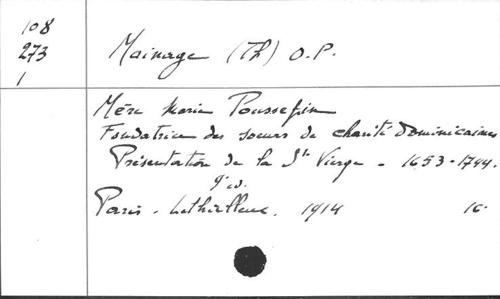 108
273
1
Mainage (Th) O.P.
Mère Marie Poussepin
Fondatrice des soeurs de charité Dominicaines
Présentation de la Ste Vierge - 1653-1744.
Paris - Lethielleux. 1914 16.